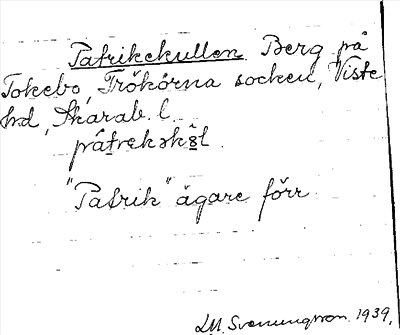 Patrikekullen. Berg på
Tokebo, Trökörna socken, Viste
hd, Skarab. l.
"Patrik" ägare förr
LM. Svenungsson. 1939.